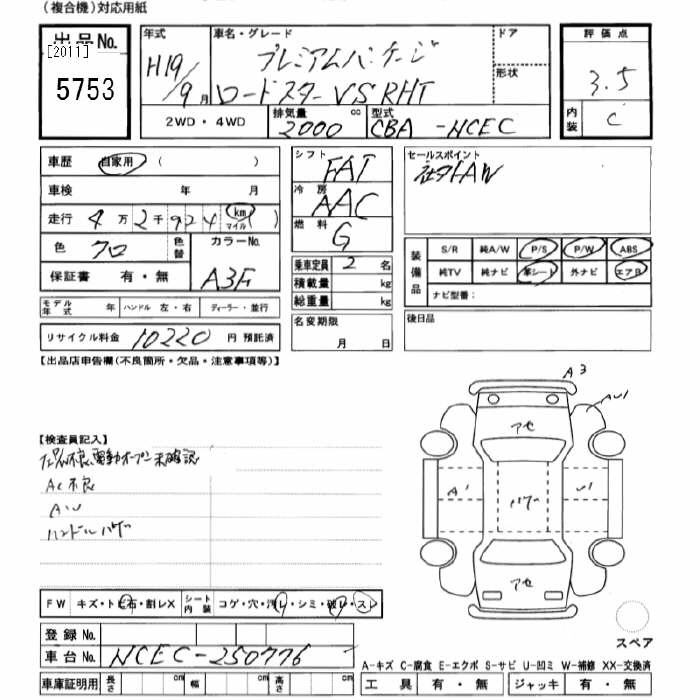 (複合機)対応用紙
出品No.
[2011]
5753
年式
H19/9月
車名・グレード
プレミアムパッケージ
ロードスターVS RHT
ドア
形状
評価点
3.5
内装
C
2WD・4WD
排気量
2000 cc
型式
CBA -NCEC
車歴 自家用 ( )
車検 年 月
走行 4万2千924 km マイル )
色 クロ 色替
カラーNo.
A3F
保証書 有・無
モデル年式 年 ハンドル 左・右 ディーラー・並行
リサイクル料金 10220 円 預託済
シフト
FAT
冷房
AAC
燃料
G
乗車定員 2 名
積載量 kg
総重量 kg
名変期限
月 日
セールスポイント
社外AW
装備品
S/R 純A/W P/S P/W ABS
純TV 純ナビ 革シート 外ナビ エアB
ナビ型番:
後日品
【出品店申告欄(不良箇所・欠品・注意事項等)】
【検査員記入】
不良、電動オープン未確認
AC不良
ハンドルハゲ
A3
AU1
アセ
A1
ハゲ
U1
アセ
スペア
FW キズ・トビ石・割レX シート内装 コゲ・穴・汚レ・シミ・破レ・スレ
登録No.
車台No. NCEC-250776
車庫証明用 長さ cm 幅 cm 高さ cm
A-キズ C-腐食 E-エクボ S-サビ U-凹ミ W-補修 XX-交換済
工具 有・無 ジャッキ 有・無